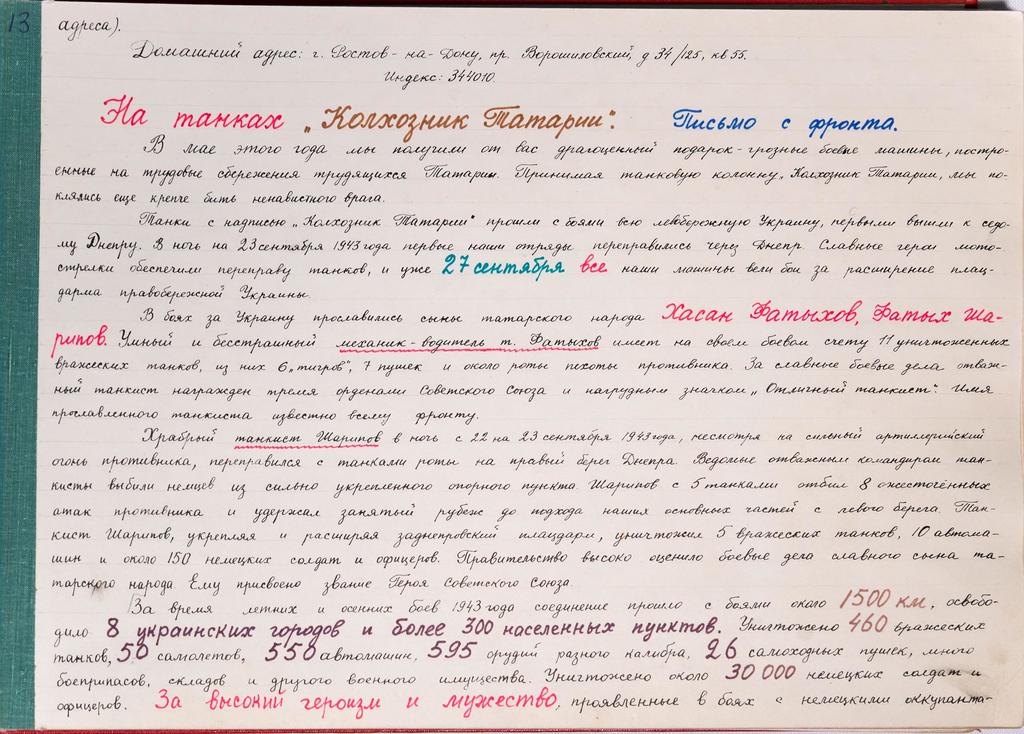 13
адреса).
Домашний адрес: г. Ростов-на-Дону, пр. Ворошиловский, д 34/125, кв 55.
Индекс: 344010.
На танках „Колхозник Татарии". Письмо с фронта.
В мае этого года мы получили от вас драгоценный подарок-грозные боевые машины, постро-
енные на трудовые сбережения трудящихся Татарии. Принимая танковую колонну „Колхозник Татарии, мы по-
клялись еще крепче бить ненавистного врага.
Танки с надписью „Колхозник Татарии" прошли с боями всю левобережную Украину, первыми вышли к седо-
му Днепру. В ночь на 23 сентября 1943 года первые наши отряды переправились через Днепр. Славные герои мото-
стрелки обеспечили переправу танков, и уже 27 сентября все наши машины вели бои за расширение плац-
дарма правобережной Украины.
В боях за Украину прославились сыны татарского народа Хасан Фатыхов, Фатых Ша-
рипов. Умный и бесстрашный механик-водитель т. Фатыхов имеет на своем боевом счету 11 уничтоженных
вражеских танков, из них 6 „тигров", 7 пушек и около роты пехоты противника. За славные боевые дела отваж-
ный танкист награжден тремя орденами Советского Союза и нагрудным значком „Отличный танкист". Имя
прославленного танкиста известно всему фронту.
Храбрый танкист Шарипов в ночь с 22 на 23 сентября 1943 года, несмотря на сильный артиллерийский
огонь противника, переправился с танками роты на правый берег Днепра. Ведомые отважным командиром тан-
кисты выбили немцев из сильно укрепленного опорного пункта. Шарипов с 5 танками отбил 8 ожесточённых
атак противника и удержал занятый рубеж до подхода наших основных частей с левого берега. Тан-
кист Шарипов, укрепляя и расширяя заднепровский плацдарм, уничтожил 5 вражеских танков, 10 автома-
шин и около 150 немецких солдат и офицеров. Правительство высоко оценило боевые дела славного сына та-
тарского народа. Ему присвоено звание Героя Советского Союза.
За время летних и осенних боев 1943 года соединение прошло с боями около 1500 км, освобо-
дило 8 украинских городов и более 300 населенных пунктов. Уничтожено 460 вражеских
танков, 50 самолетов, 550 автомашин, 595 орудий разного калибра, 26 самоходных пушек, много
боеприпасов, складов и другого военного имущества. Уничтожено около 30 000 немецких солдат и
офицеров. За высокий героизм и мужество, проявленные в боях с немецкими оккупанта-